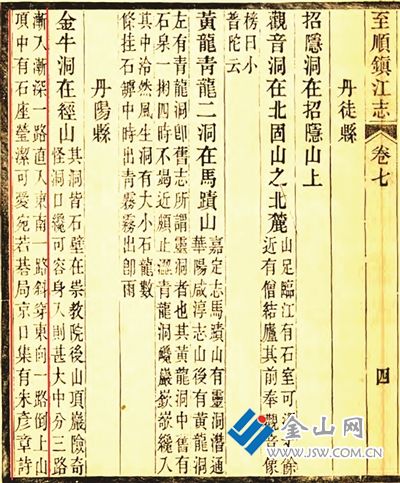 至順鎮江志 卷七 四
丹徒縣
招隱洞在招隱山上
觀音洞在北固山之北麓
山足臨江有石室可 餘
近有僧結廬其前奉觀音像
榜曰小
普陀云
黃龍青龍二洞在馬蹟山
嘉定志馬蹟山有靈洞潛通
華陽咸淳志山後有黃龍洞
左有青龍洞卽舊志所謂靈洞者也其黃龍洞中舊有
石泉一掬四時不竭近頗止 青龍洞 巖嵌嶔纔入
其中泠然風生洞有大小石龍數
條挂石罅中時出青霧霧出卽雨
丹陽縣
金牛洞在經山
其洞皆石壁在崇教院後山頂巖險奇
怪洞口纔可容身入則甚大中分三路
漸入漸深一路直入東南一路斜穿東向一路倒上山
項中有石座瑩潔可愛宛若碁局京口集有朱彥章詩
金山网
WWW.JSW.COM.CN